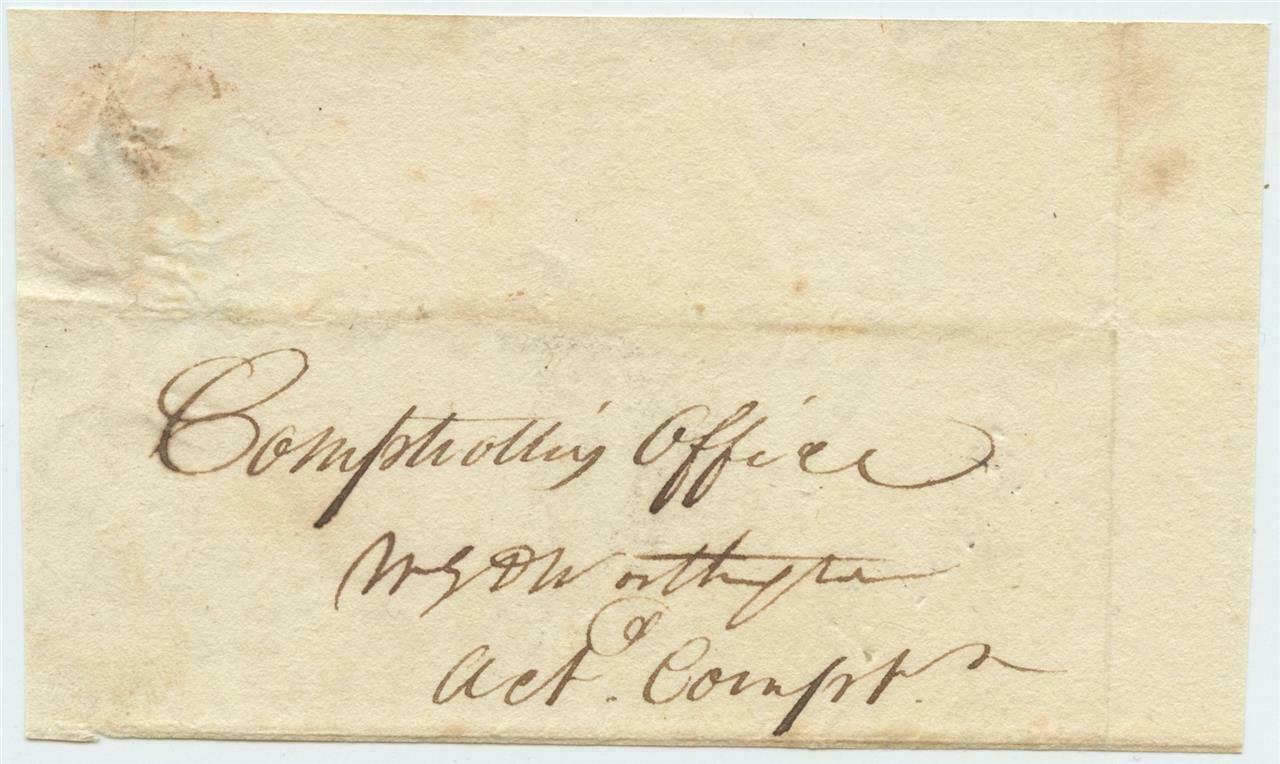 Comptrollers Office
W G D Worthington
Actg. Comptr